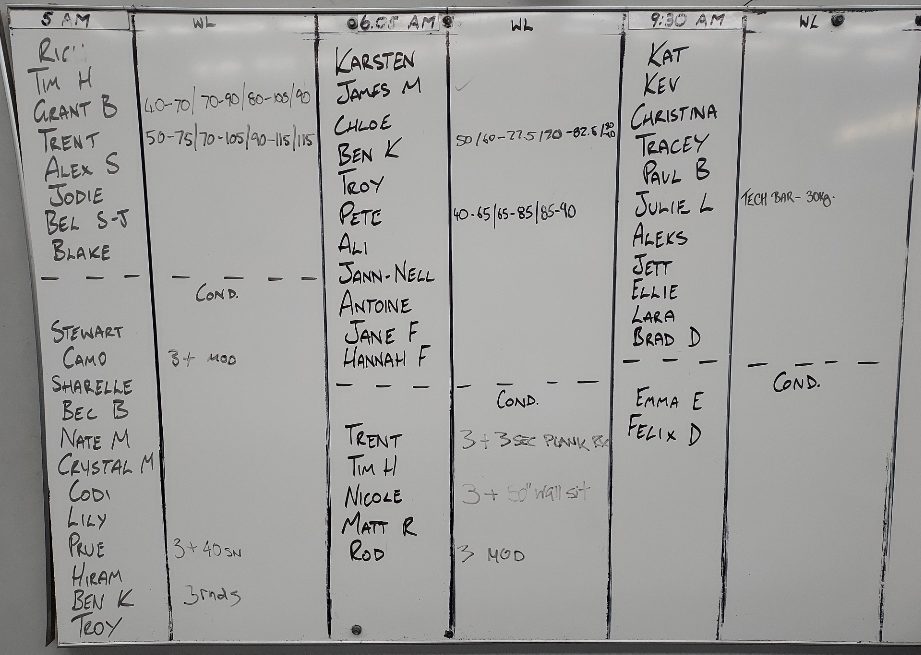 5 AM
WL
RIC
TIM H
GRANT B 40-70/70-90/80-105/90
TRENT 50-75/70-105/90-115/115
ALEX S
JODIE
BEL S-J
BLAKE
COND.
STEWART
CAMO 3+ MOD
SHARELLE
BEC B
NATE M
CRYSTAL M
CODI
LILY
PRUE 3+40SN
HIRAM
BEN K 3rnds
TROY
6:05 AM
WL
KARSTEN
JAMES M
CHLOE
BEN K 50/60-77.5/70-82.5/
TROY
PETE 40-65/65-85/85-90
ALI
JANN-NELL
ANTOINE
JANE F
HANNAH F
COND.
TRENT 3+3SEC PLANK
TIM H
NICOLE 3+50" wall sit
MATT R
ROD 3 MOD
9:30 AM
WL
KAT
KEV
CHRISTINA
TRACEY
PAUL B
JULIE L TECH BAR- 30kg.
ALEKS
JETT
ELLIE
LARA
BRAD D
COND.
EMMA E
FELIX D